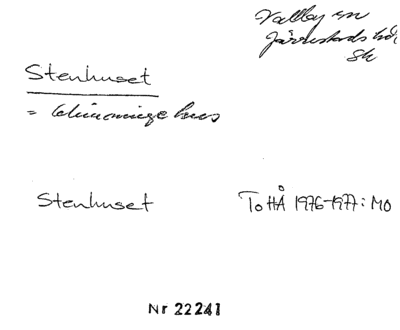 Vallby sn
Järrestads hd
Sk
Stenhuset
= Glimminge hus
Stenhuset ToHÅ 1976-1977: MO
Nr 22241